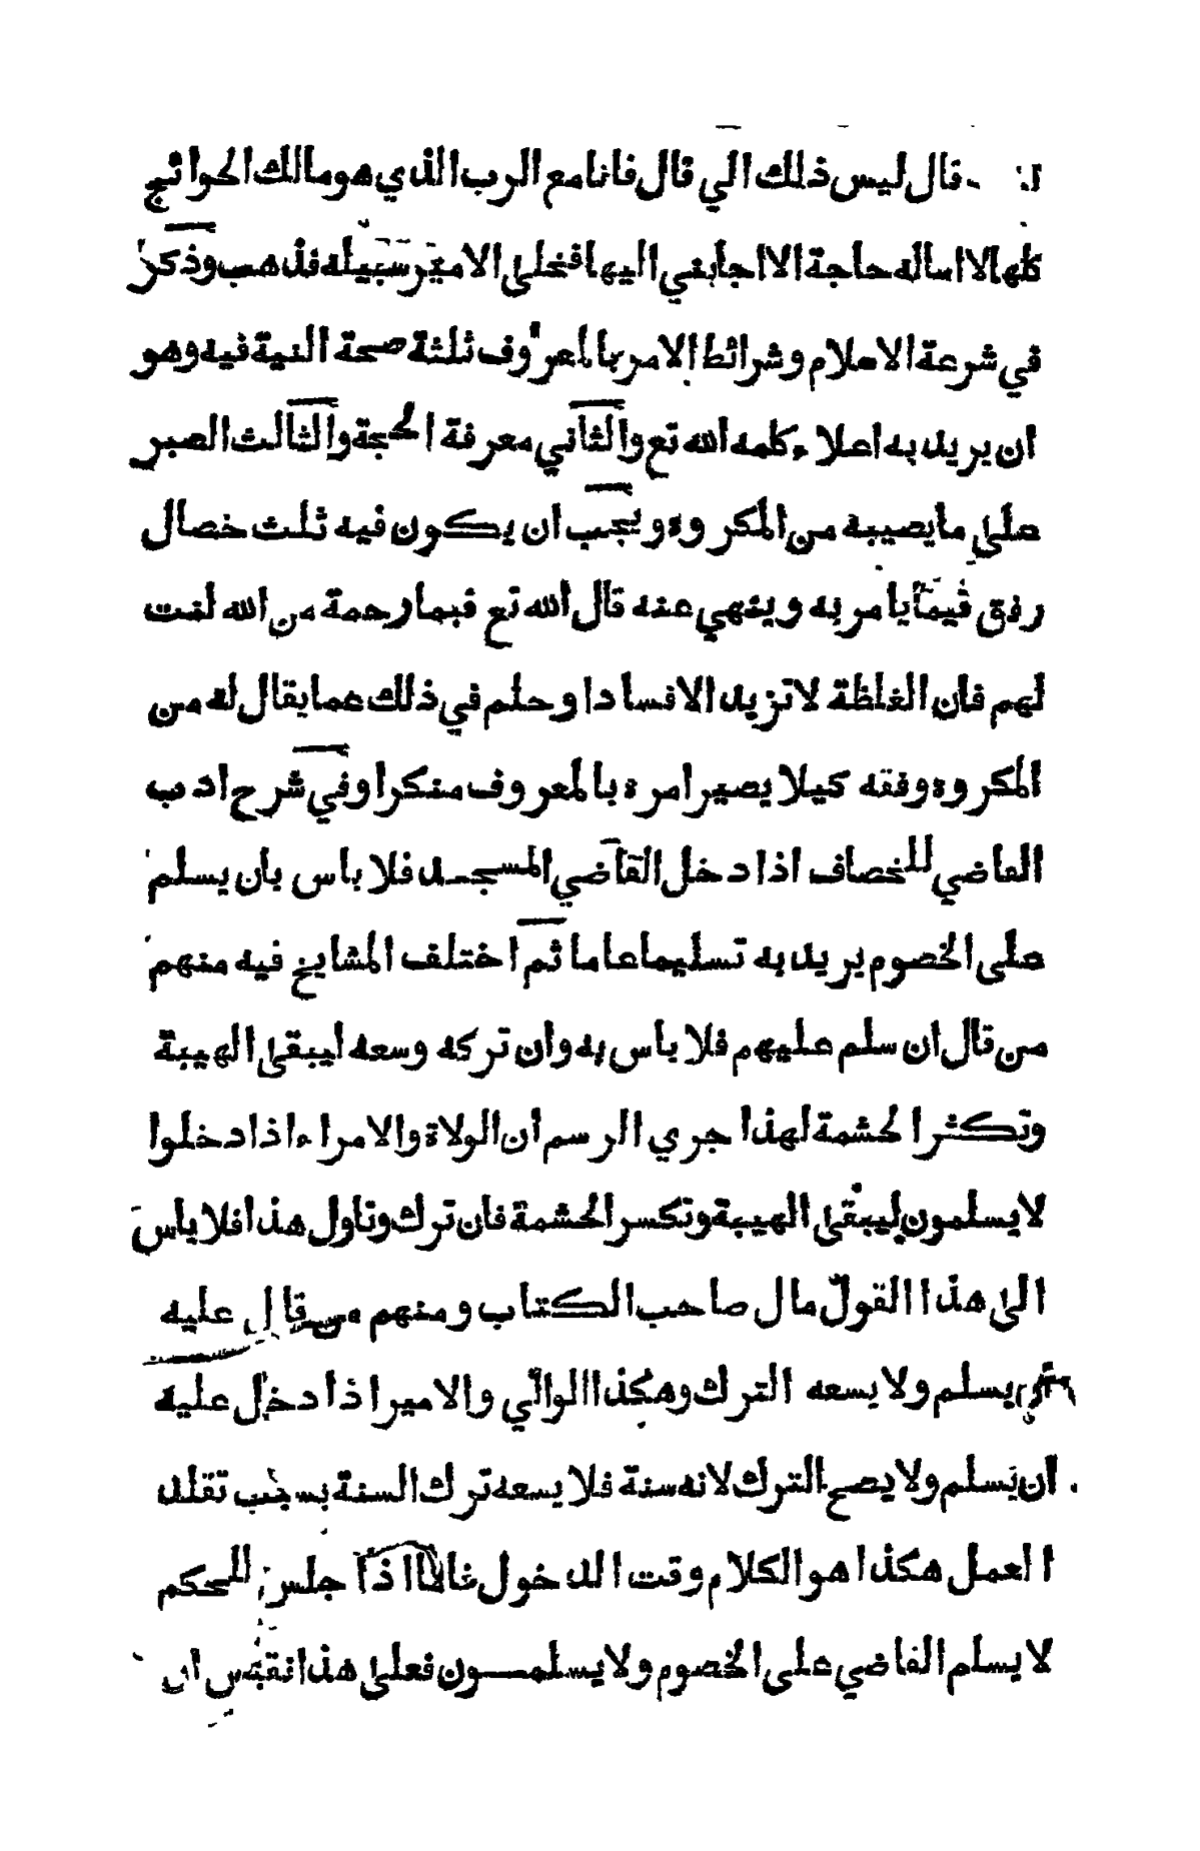 قال ليس ذلك الي قال فانا مع الرب الذي هو مالك الحوائج
كلها لا اساله حاجة الا اجابني اليها فخلى الامير سبيله فذهب وذكر
في شرعة الاسلام وشرائط الامر بالمعروف ثلثة صحة النية فيه وهو
ان يريد به اعلاء كلمه الله تع والثاني معرفة الحجة والثالث الصبر
على ما يصيبه من المكروه ويجب ان يكون فيه ثلث خصال
رفق فيما يامر به وينهي عنه قال الله تع فبما رحمة من الله لنت
لهم فان الغلظة لا تزيد الا فسادا وحلم في ذلك عما يقال له من
المكروه وفقه كيلا يصير امره بالمعروف منكرا وفي شرح ادب
القاضي للخصاف اذا دخل القاضي المسجد فلا باس بان يسلم
على الخصوم يريد به تسليما عاما ثم اختلف المشايخ فيه منهم
من قال ان سلم عليهم فلا باس به وان تركه وسعه ليبقى الهيبة
وتكثر الحشمة لهذا جري الرسم ان الولاة والامراء اذا دخلوا
لا يسلمون ليبقى الهيبة وتكسر الحشمة فان ترك وتاول هذا فلا باس
الى هذا القول مال صاحب الكتاب ومنهم من قال عليه
يسلم ولا يسعه الترك وهكذا الوالي والامير اذا دخل عليه
ان يسلم ولا يصح الترك لانه سنة فلا يسعه ترك السنة بسبب تقلد
العمل هكذا هو الكلام وقت الدخول فاما اذا جلس للحكم
لا يسلم القاضي على الخصوم ولا يسلمون فعلى هذا